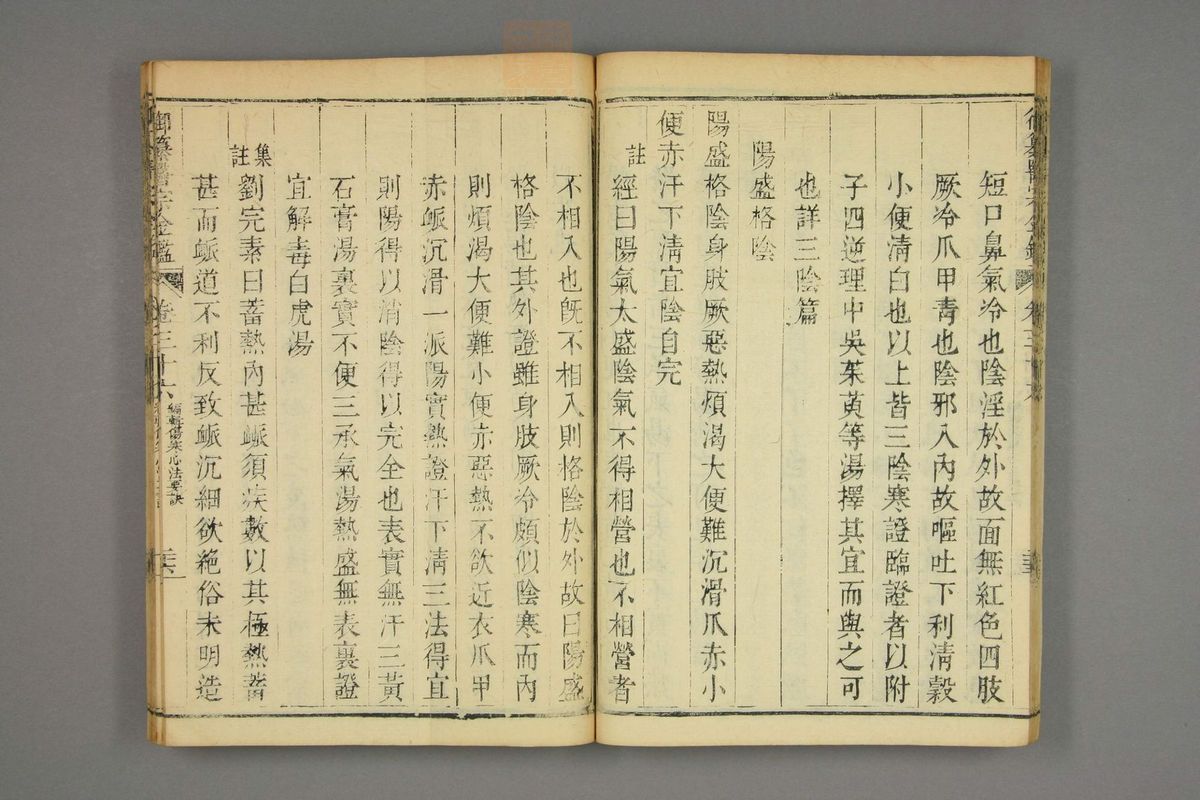 短口鼻氣冷也陰淫於外故面無紅色四肢
厥冷爪甲青也陰邪入內故嘔吐下利清穀
小便清白也以上皆三陰寒證臨證者以附
子四逆理中吳茱萸等湯擇其宜而與之可
也詳三陰篇
陽盛格陰
陽盛格陰身肢厥惡熱煩渴大便難沉滑爪赤小
便赤汗下淸宜陰自完
註
經曰陽氣太盛陰氣不得相營也不相營者
不相入也既不相入則格陰於外故曰陽盛
格陰也其外證雖身肢厥冷頗似陰寒而內
則煩渴大便難小便赤惡熱不欲近衣爪甲
赤脈沉滑一派陽實熱證汗下清三法得宜
則陽得以消陰得以完全也表實無汗三黃
石膏湯裏實不便三承氣湯熱盛無表裏證
宜解毒白虎湯
集註
劉完素曰蓄熱內甚脈須疾數以其極熱蓄
甚而脈道不利反致脈沉細欲絕俗未明造
御纂醫宗金鑑
卷三十六
編輯傷寒心法要訣